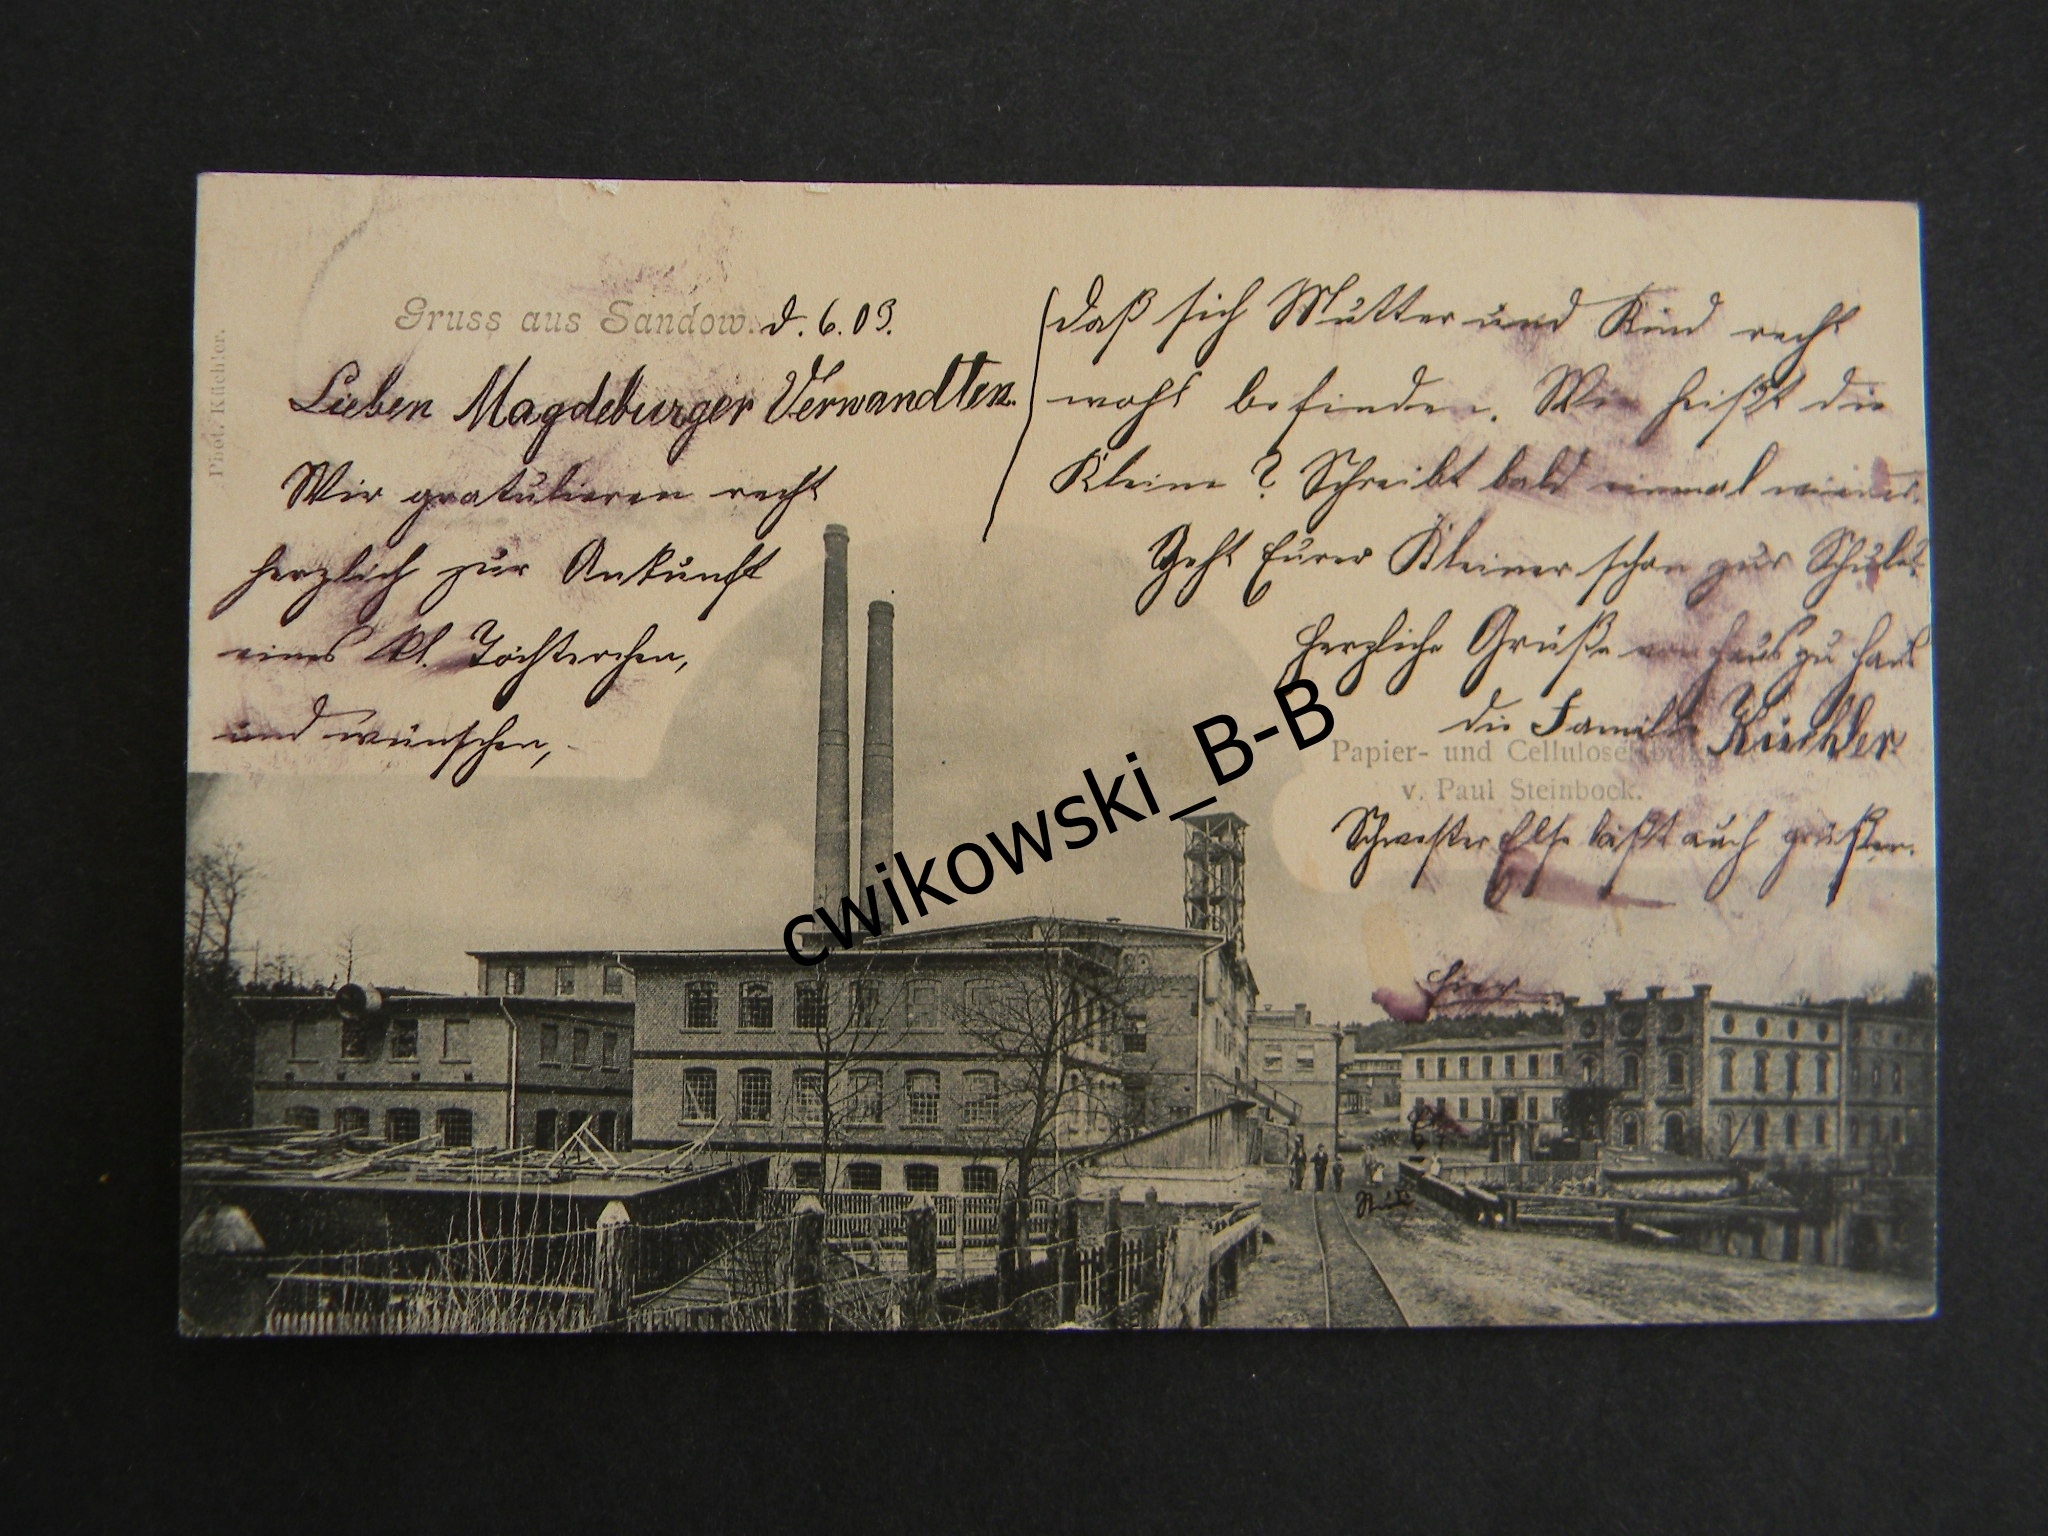 Phot. Küchler.
Gruss aus Sandow. d. 6. 03.
Lieben Magdeburger Verwandten.
Wir gratulieren recht
herzlich zur Ankunft
eines kl. Töchterchen,
und wünschen,
daß sich Mutter und Kind recht
wohl befinden. Wie heißt die
Kleine? Schreibt bald einmal wieder.
Geht Eurer Kleiner schon zur Schule?
Herzliche Grüße von Haus zu Haus
die Familie Küchler
Papier- und Cellulosefabrik
v. Paul Steinbock.
Schwester Else läßt auch grüßen.
hier
cwikowski_B-B